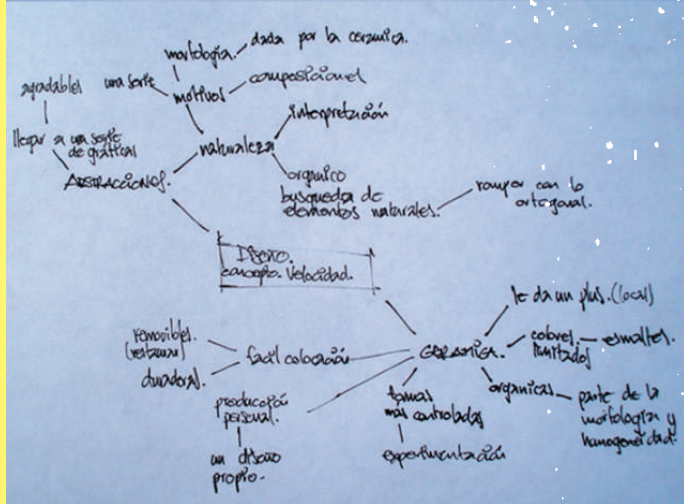 morfología.
dada por la ceramica.
agradables
una serie
motivos
composicional
interpretación
llegar a una serie
de graficas
naturaleza
ABSTRACCIONES.
organico
busqueda de
elementos naturales.
romper con lo
ortogonal.
Diseño.
concepto. Velocidad.
le da un plus. (local)
removibles.
(restaurar)
facil colocación
CERAMICA.
colores
limitados
esmaltes.
duradoras.
organicas
parte de la
morfologia y
homogeneidad.
producción
personal.
mas controladas
un diseño
propio.
experimentación